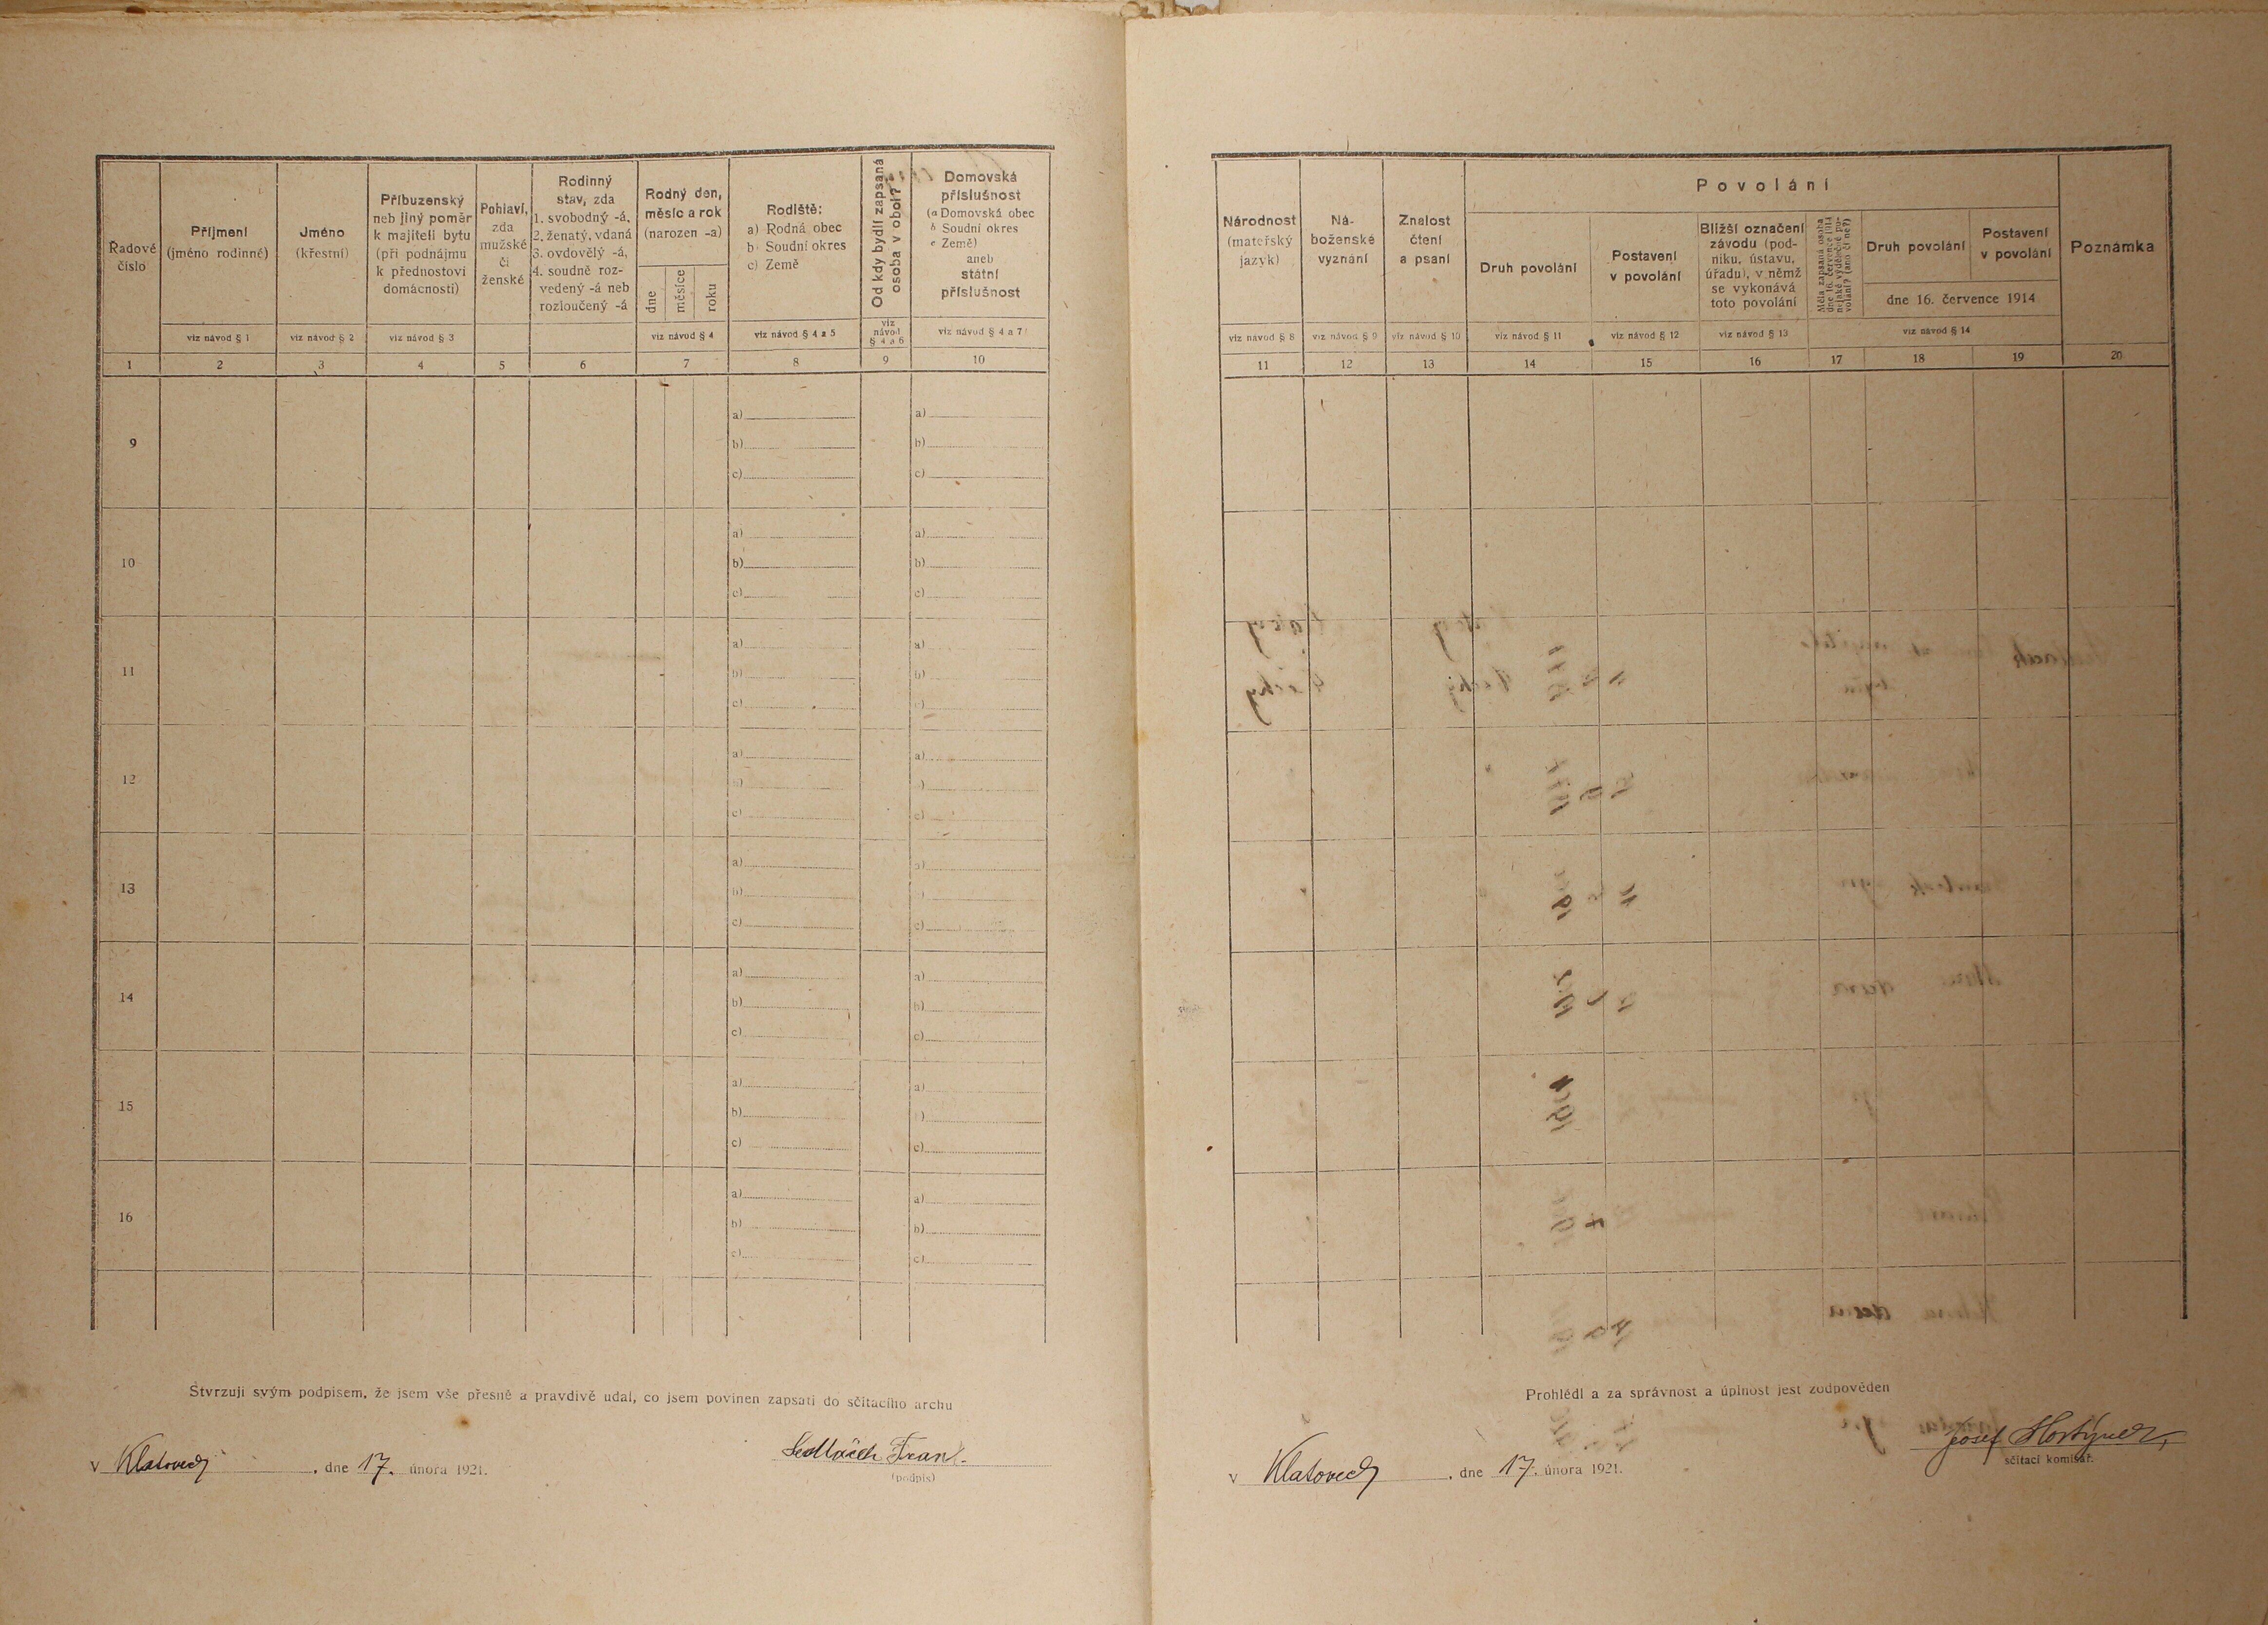 Řadové
číslo
Příjmení
(jméno rodinné)
viz návod § 1
Jméno
(křestní)
viz návod § 2
Příbuzenský
neb jiný poměr
k majiteli bytu
(při podnájmu
k přednostovi
domácnosti)
viz návod § 3
Pohlaví,
zda
mužské
či
ženské
Rodinný
stav, zda
1. svobodný -á,
2. ženatý, vdaná
3. ovdovělý -á,
4. soudně roz-
vedený -á neb
rozloučený -á
Rodný den,
měsíc a rok
(narozen -a)
dne
měsíce
roku
viz návod § 4
Rodiště:
a) Rodná obec
b) Soudní okres
c) Země
viz návod § 4 a 5
Od kdy bydlí zapsaná
osoba v obci?
viz
návod
§ 4 a 6
Domovská
příslušnost
(a Domovská obec
b Soudní okres
c Země)
aneb
státní
příslušnost
viz návod § 4 a 7
1 2 3 4 5 6 7 8 9 10
9
a) a)
b) b)
c) c)
10
a) a)
b) b)
c) c)
11
a) a)
b) b)
c) c)
12
a) a)
b) )
c) c)
13
a) a)
b) )
c) c)
14
a) a)
b) b)
c) c)
15
a) a)
b) b)
c) c)
16
a) a)
b) b)
c) c)
Stvrzuji svým podpisem, že jsem vše přesně a pravdivě udal, co jsem povinen zapsati do sčítacího archu
v Klatovech, dne 17. února 1921.
Sedláček Frant.
(podpis)
Národnost
(mateřský
jazyk)
viz návod § 8
Ná-
boženské
vyznání
viz návod § 9
Znalost
čtení
a psaní
viz návod § 10
Povolání
Druh povolání
viz návod § 11
Postavení
v povolání
viz návod § 12
Bližší označení
závodu (pod-
niku, ústavu,
úřadu), v němž
se vykonává
toto povolání
viz návod § 13
Měla zapsaná osoba
dne 16. července 1914
nějaké výdělečné po-
volání? (ano či ne?)
Druh povolání
Postavení
v povolání
dne 16. července 1914
viz návod § 14
Poznámka
11 12 13 14 15 16 17 18 19 20
Prohlédl a za správnost a úplnost jest zodpověden
v Klatovech, dne 17. února 1921.
Josef
sčítací komisař.